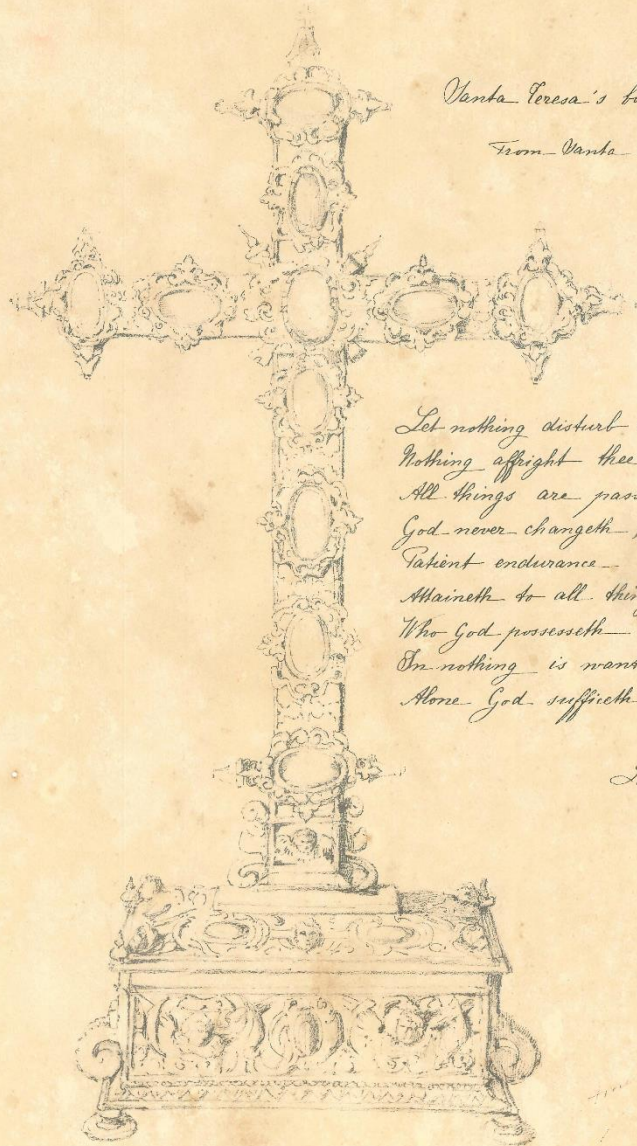 Santa Teresa's
From Santa
Let nothing disturb
Nothing affright thee
All things are
God never changeth
Patient endurance
Attaineth to all
Who God possesseth
In nothing is
Alone God sufficeth